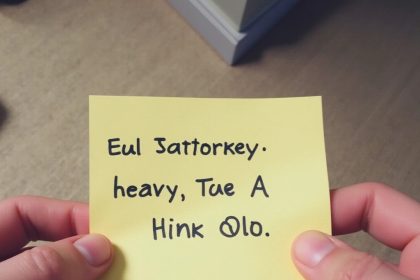 Eul Jattorkey.
heavy, Tue A
Hink Olo.